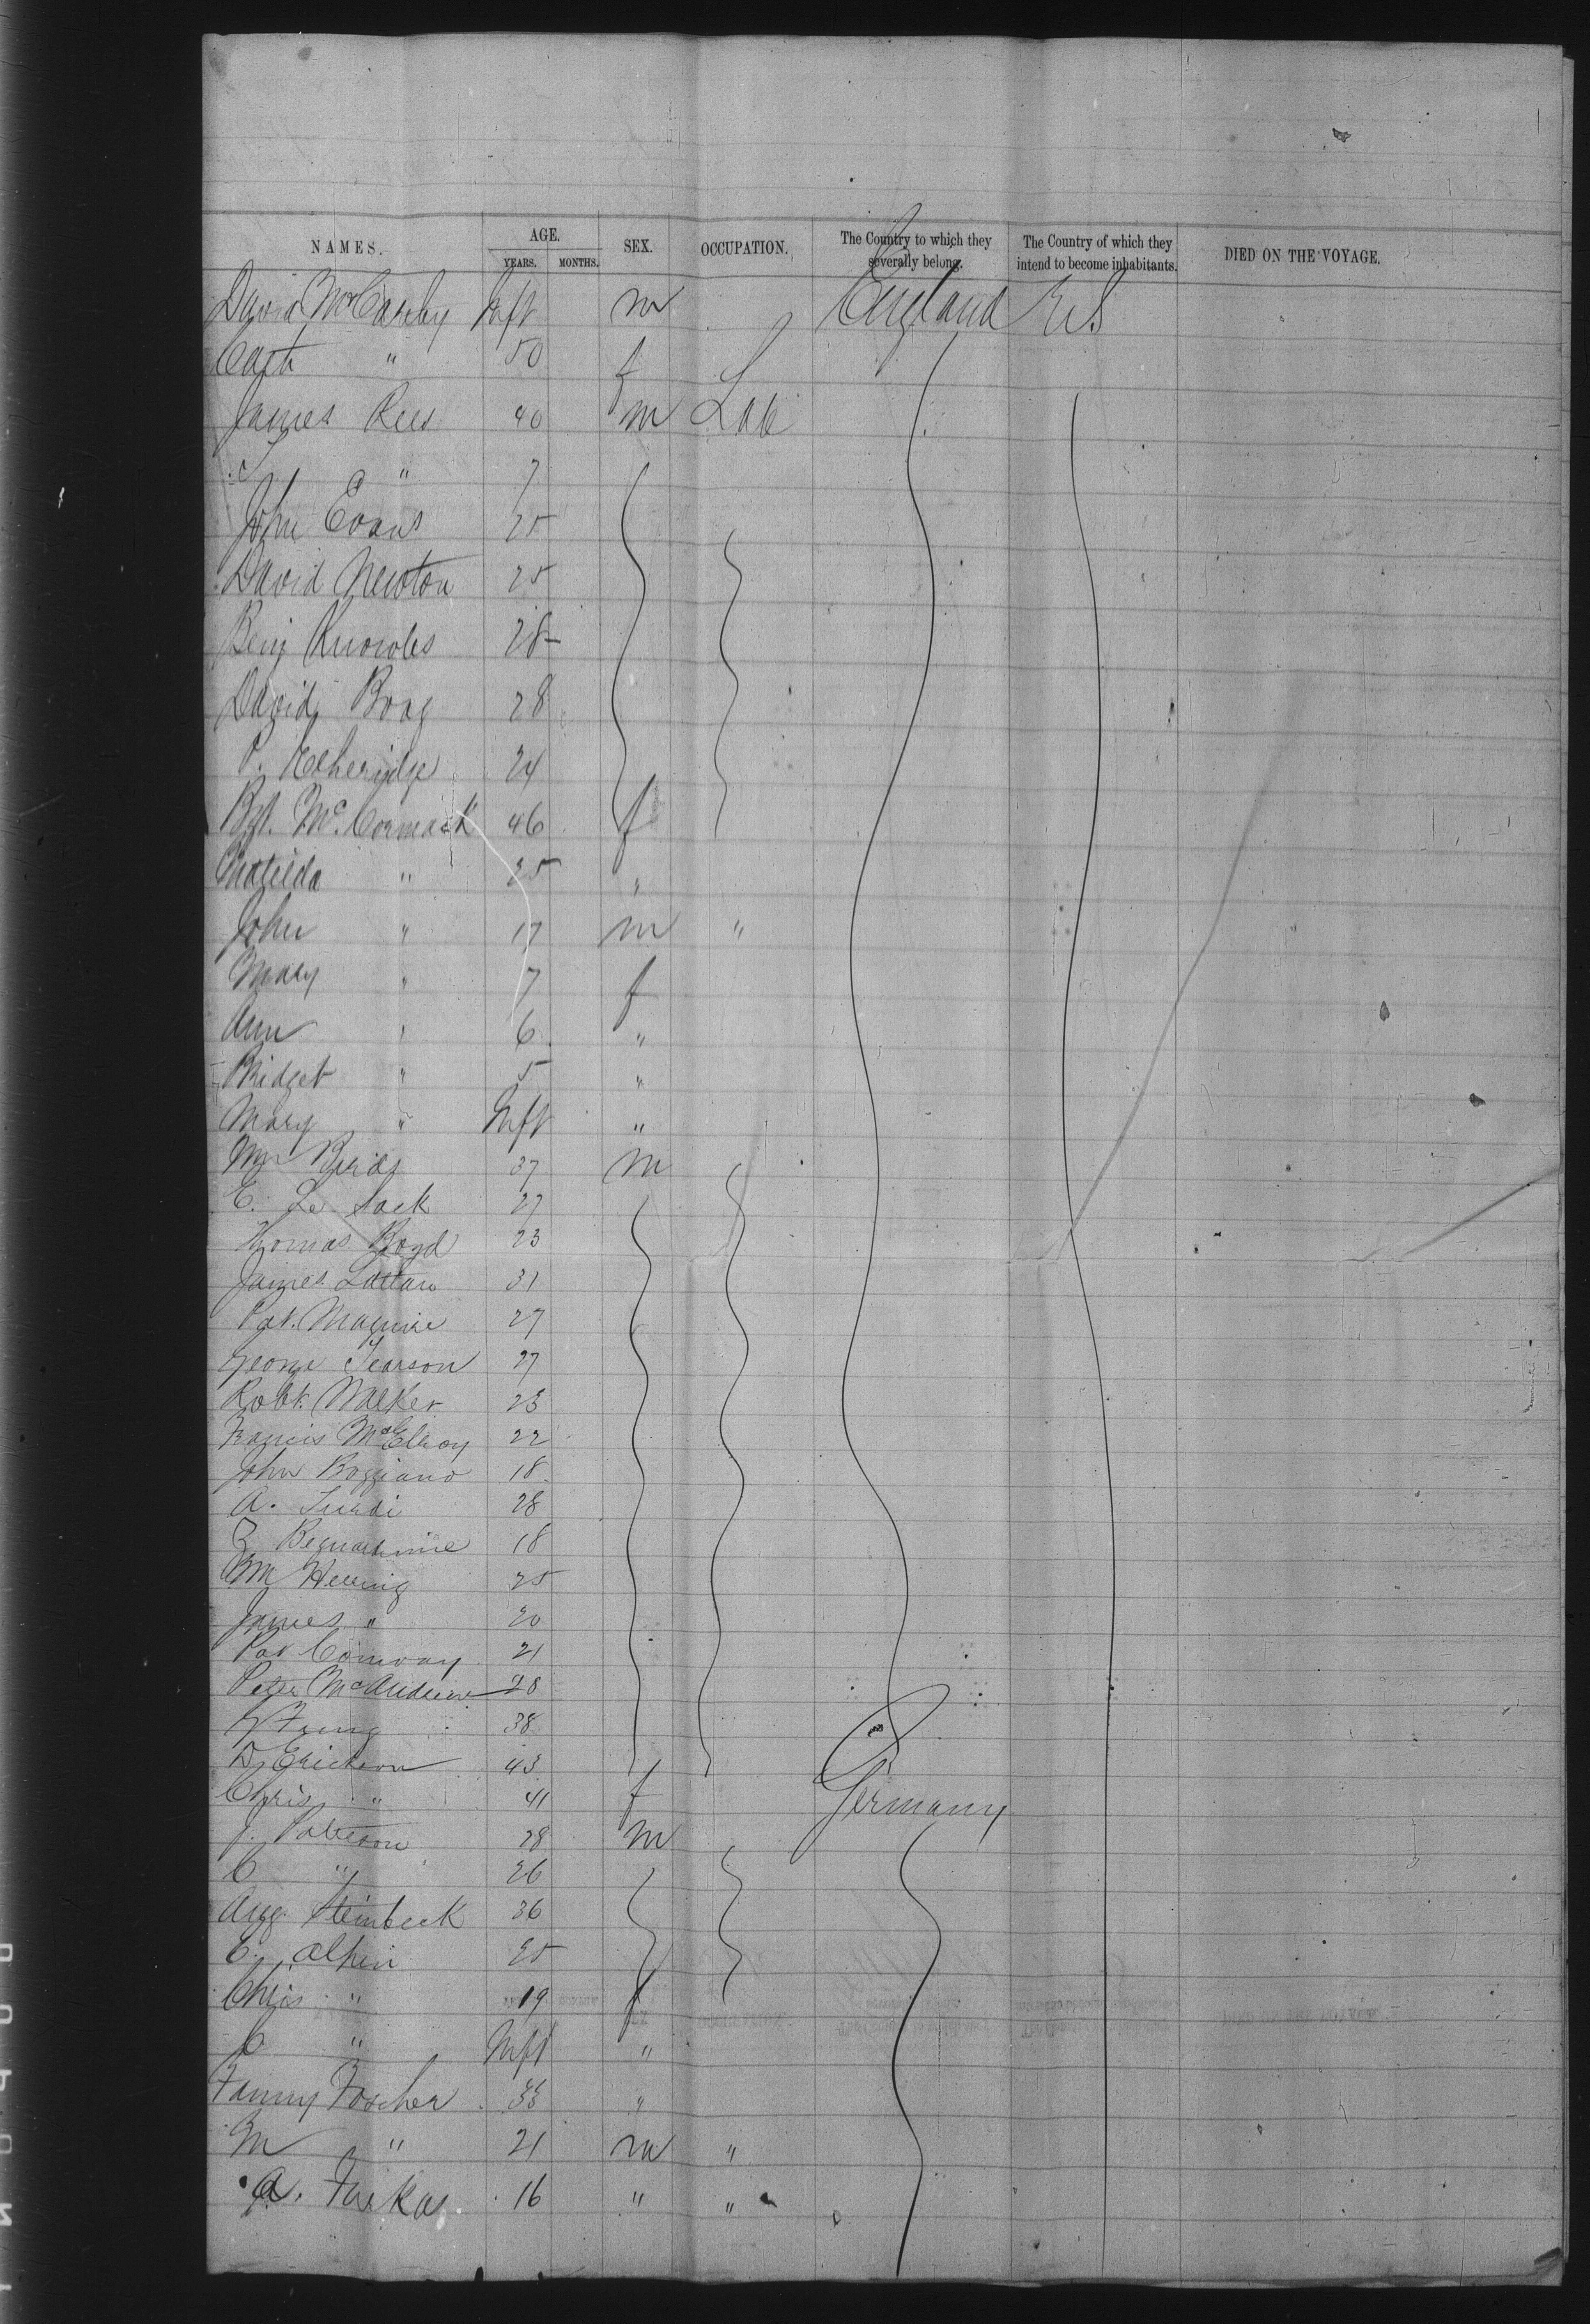 NAMES. AGE. SEX. OCCUPATION. The Country to which they severally belong. The Country of which they intend to become inhabitants. DIED ON THE VOYAGE.
YEARS. MONTHS.
David McCarthy Inft m England U.S
Cath " 50 f
James Rees 40 m Lab
" 7
John Evans 25
David Newton 25
Benj Knowles 28
David Boag 28
P. Etheridge 24
Bgt. Mc.Cormack 46 f
Matilda " 25 "
John " 17 m "
Mary " 7 f
Ann " 6 "
Bridget " 5 "
Mary " Inft "
Wm 37 m
E. Le Sack 27
Thomas Boyd 23
James 31
Pat. Maguire 27
George Pearson 27
Robt. Walker 23
Francis McElroy 22
John Boggiano 18
A. 28
18
Wm 25
James " 20
Pat Conway 21
Peter McAndrew 28
38
D. Erickson 43
Chris " 41 f Germany
J. 28 m
C " 26
Aug. Steinbeck 36
C. 25
Chris " 19 f
C " Inft "
Fanny Foscher 33 "
M " 21 m "
A. Farkas 16 " "